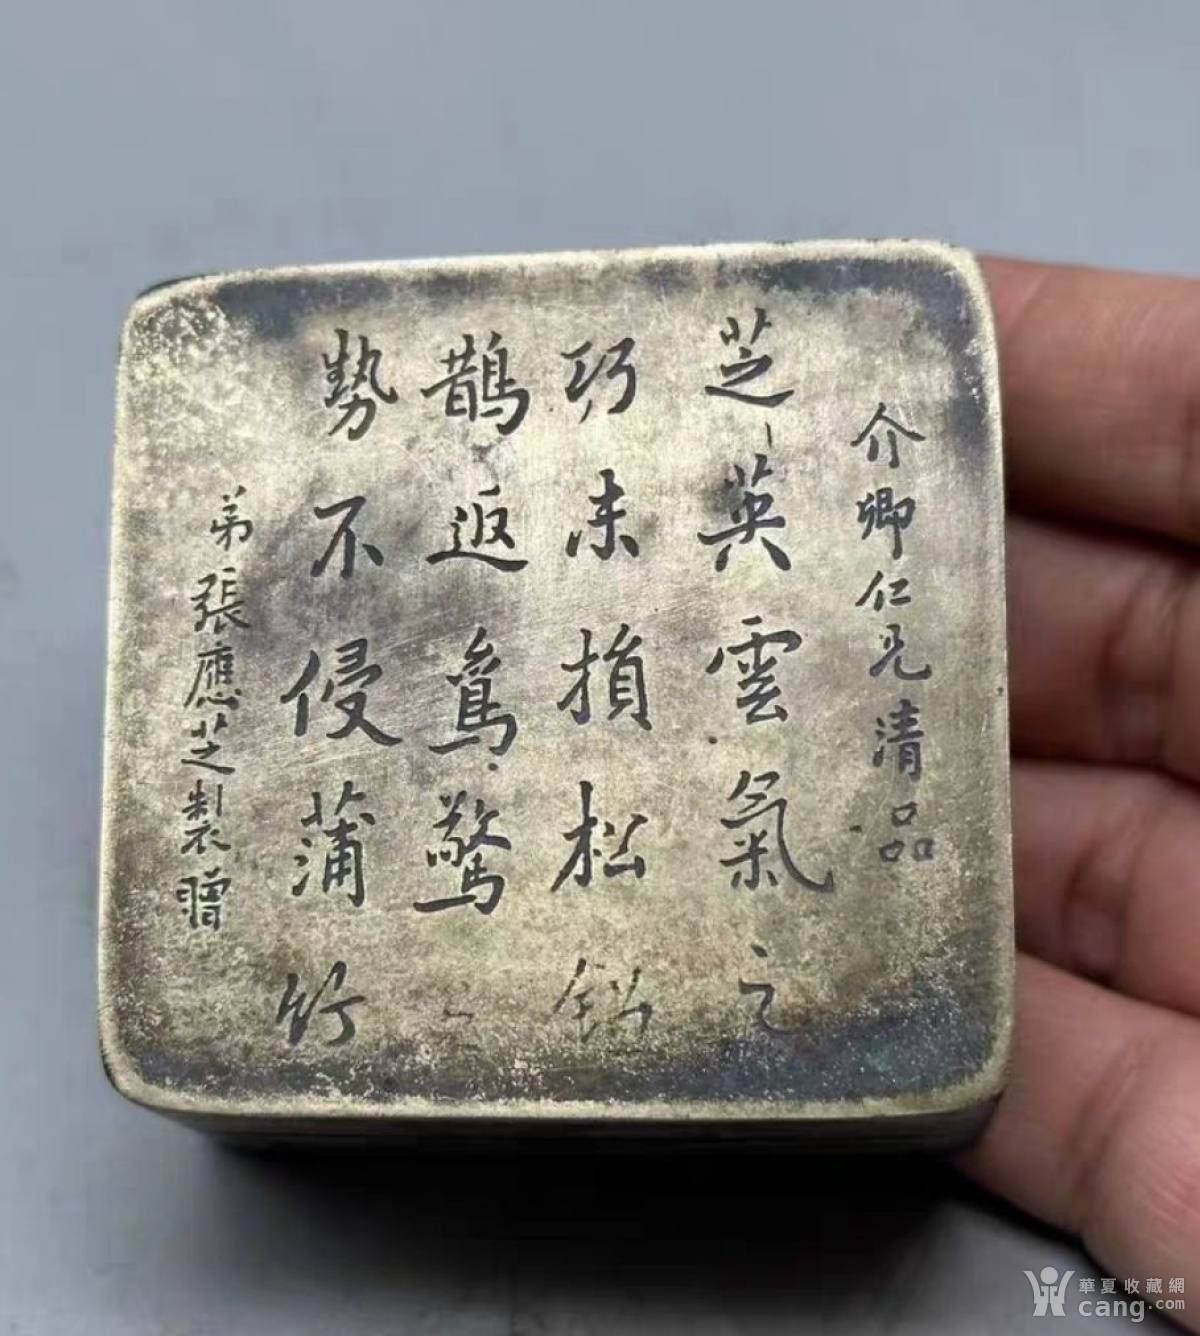 介卿仁兄清品
芝英雲氣之
巧未損松鉛
鵲返鸞驚之
勢不侵蒲竹
弟張應芝製贈
華夏收藏網
cang.com